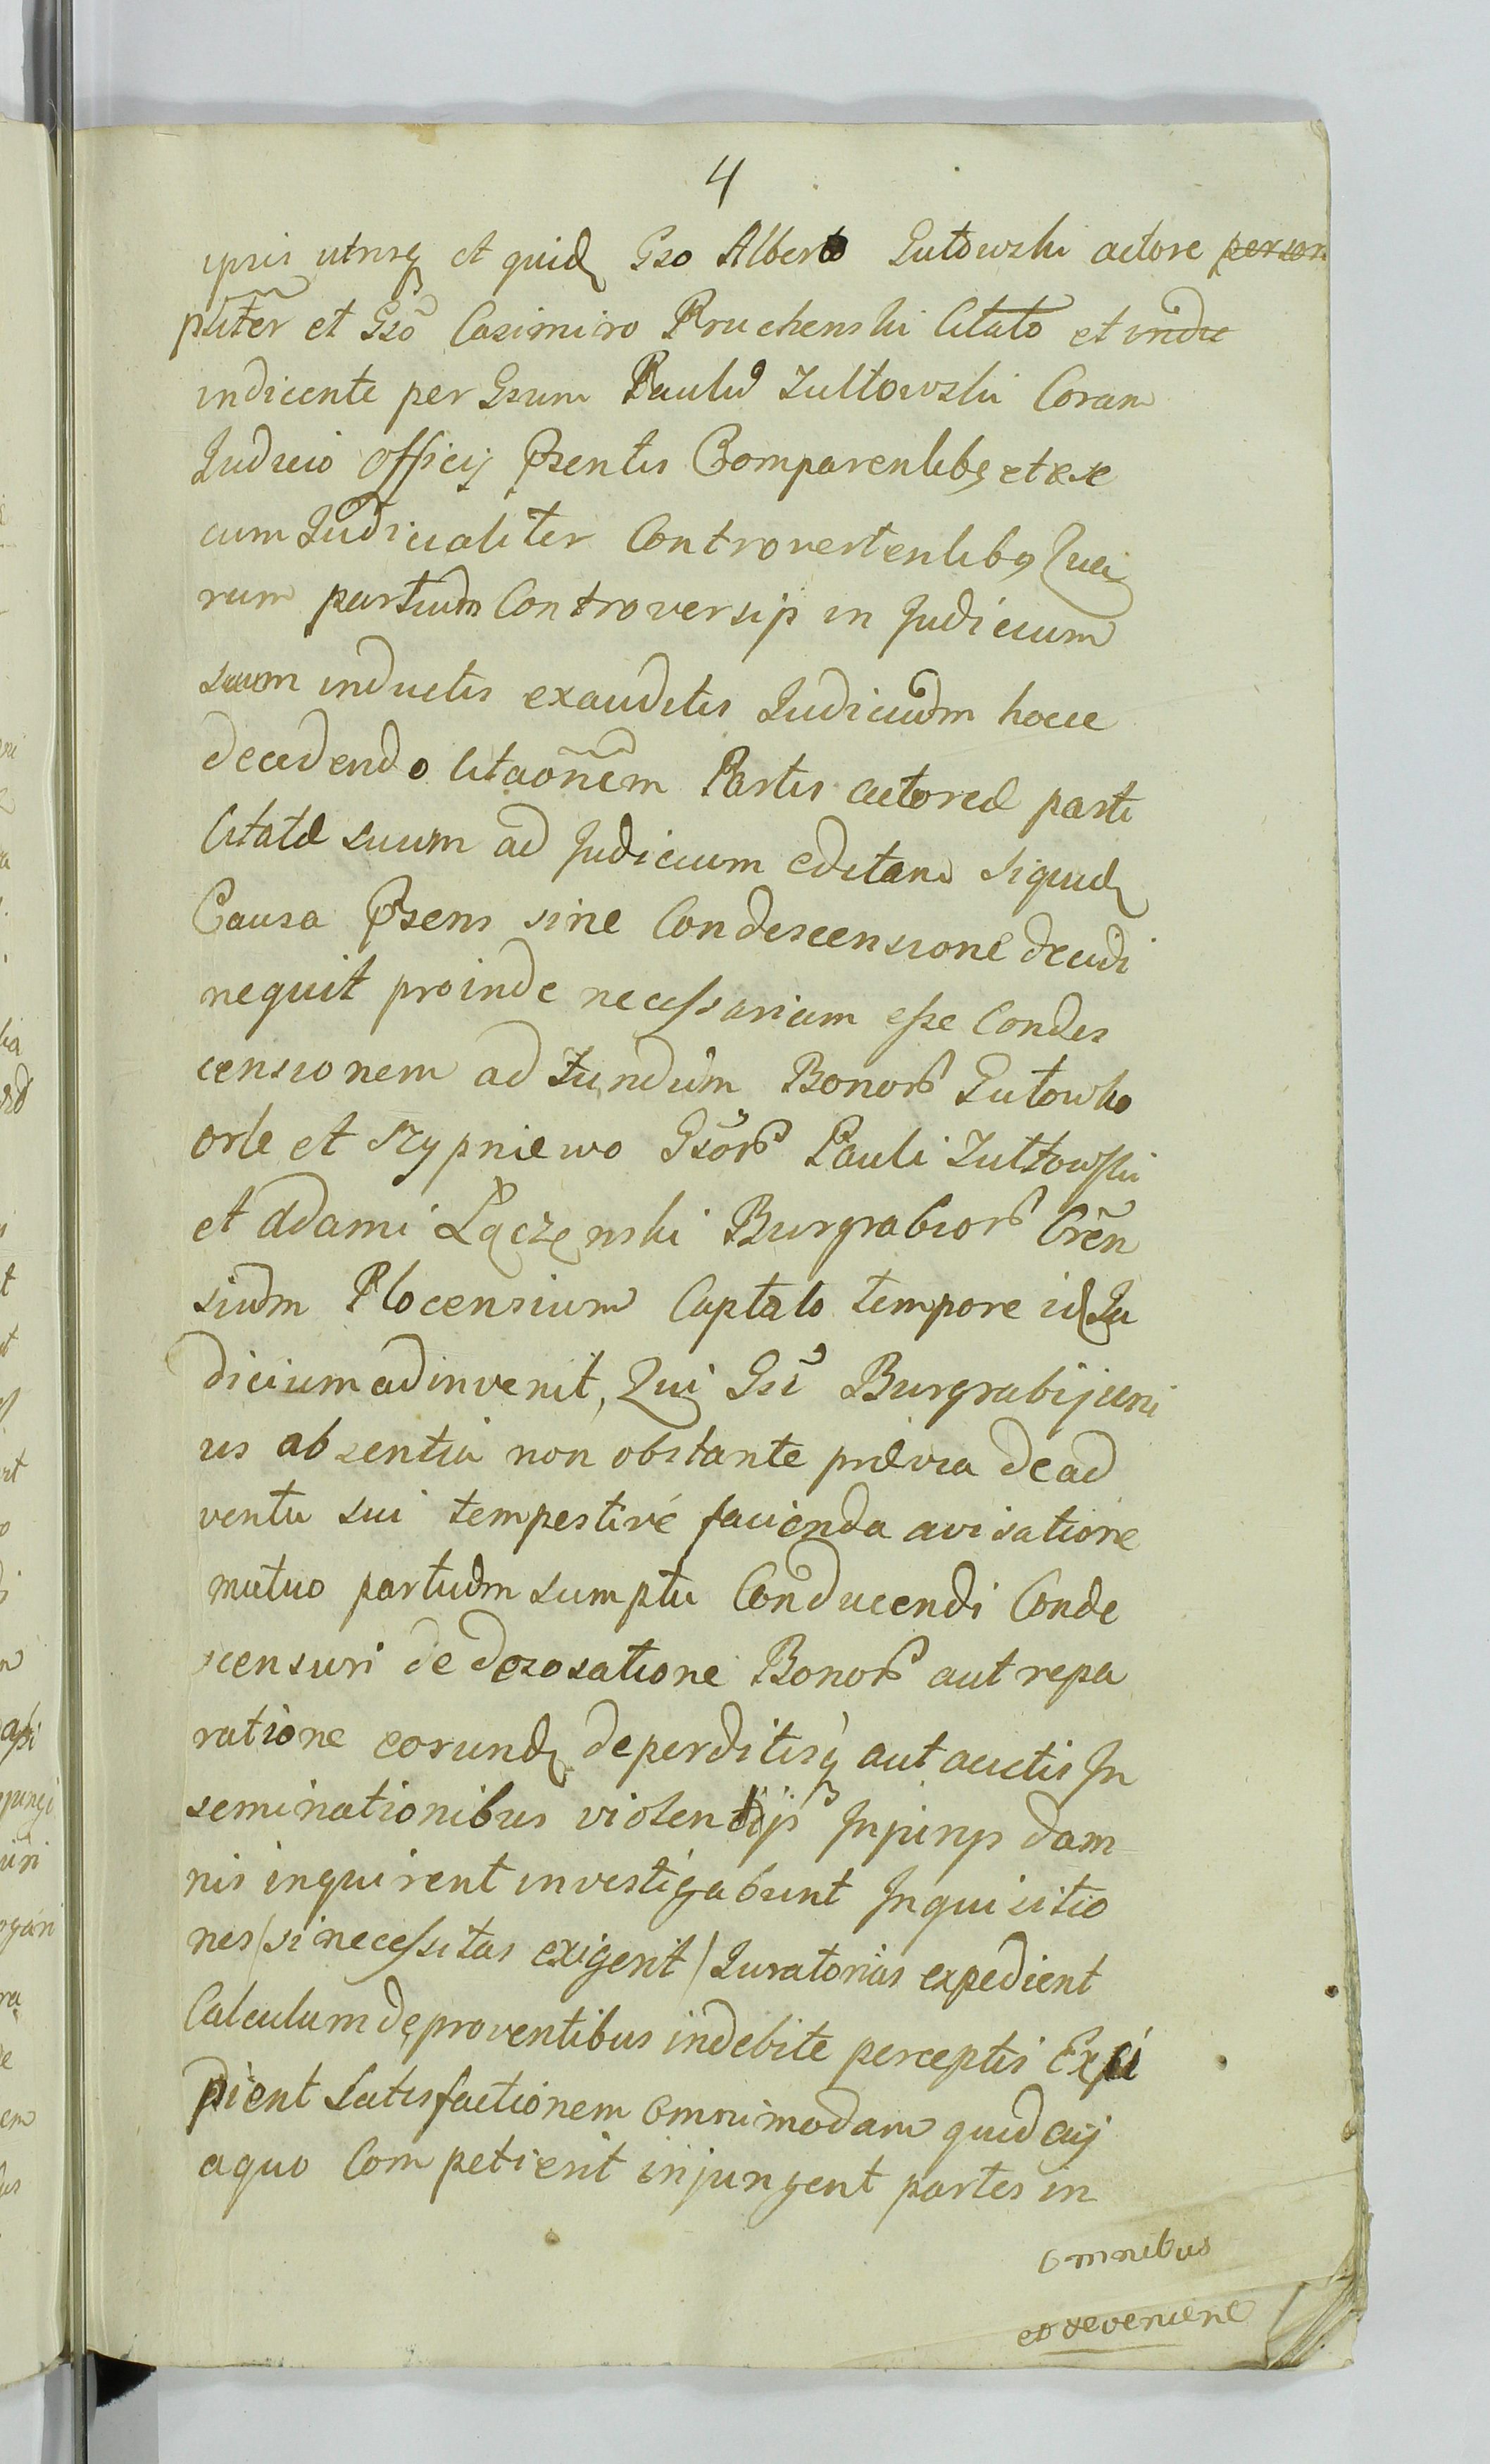 4
ipsis utrisq et quid Gso Alberto Gutowski actore person
pliter et Gso Casimiro Pruchenski Citato et indic
indicente per Gsum Paulu Zultowski Coram
Judicio officij Psentis Comparentibq et ex se
cum Judicialiter Controvertentibq Qua
rum partium Controversijs in Judicium
suum inductis exauditis Judicium hocce
decidendo Citaonem Partis actoreæ parti
Citatæ suum ad Judicium editam siquid
Causa Psens sine Condescensione decidi
nequit proinde necessarium esse Condes
censionem ad Fundum Bonor Gutowko
orle et Szypniewo Gsor Pauli Zultowski
et Adami Łączęnski Burgrabior Cren
sium Plocensium Captato tempore id Ju
dicium adinvenit, Qui Gsi Burgrabij uni
us absentia non obstante prævia de ad
ventu sui tempestivé facienda avisatione
mutuo partium sumptu Conducendi Conde
scensuri de dezosatione Bonor aut repa
ratione eorund deperditisq aut auctis In
seminationibus violentijs Injurijs dam
nis inquirent investigabunt Inquisitio
nes /si necessitas exigerit/ Juratorias expedient
Calculum de proventibus indebite perceptis Exci
pient Satisfactionem omnimodam quid cuj
a quo Competierit injungent partes in
omnibus